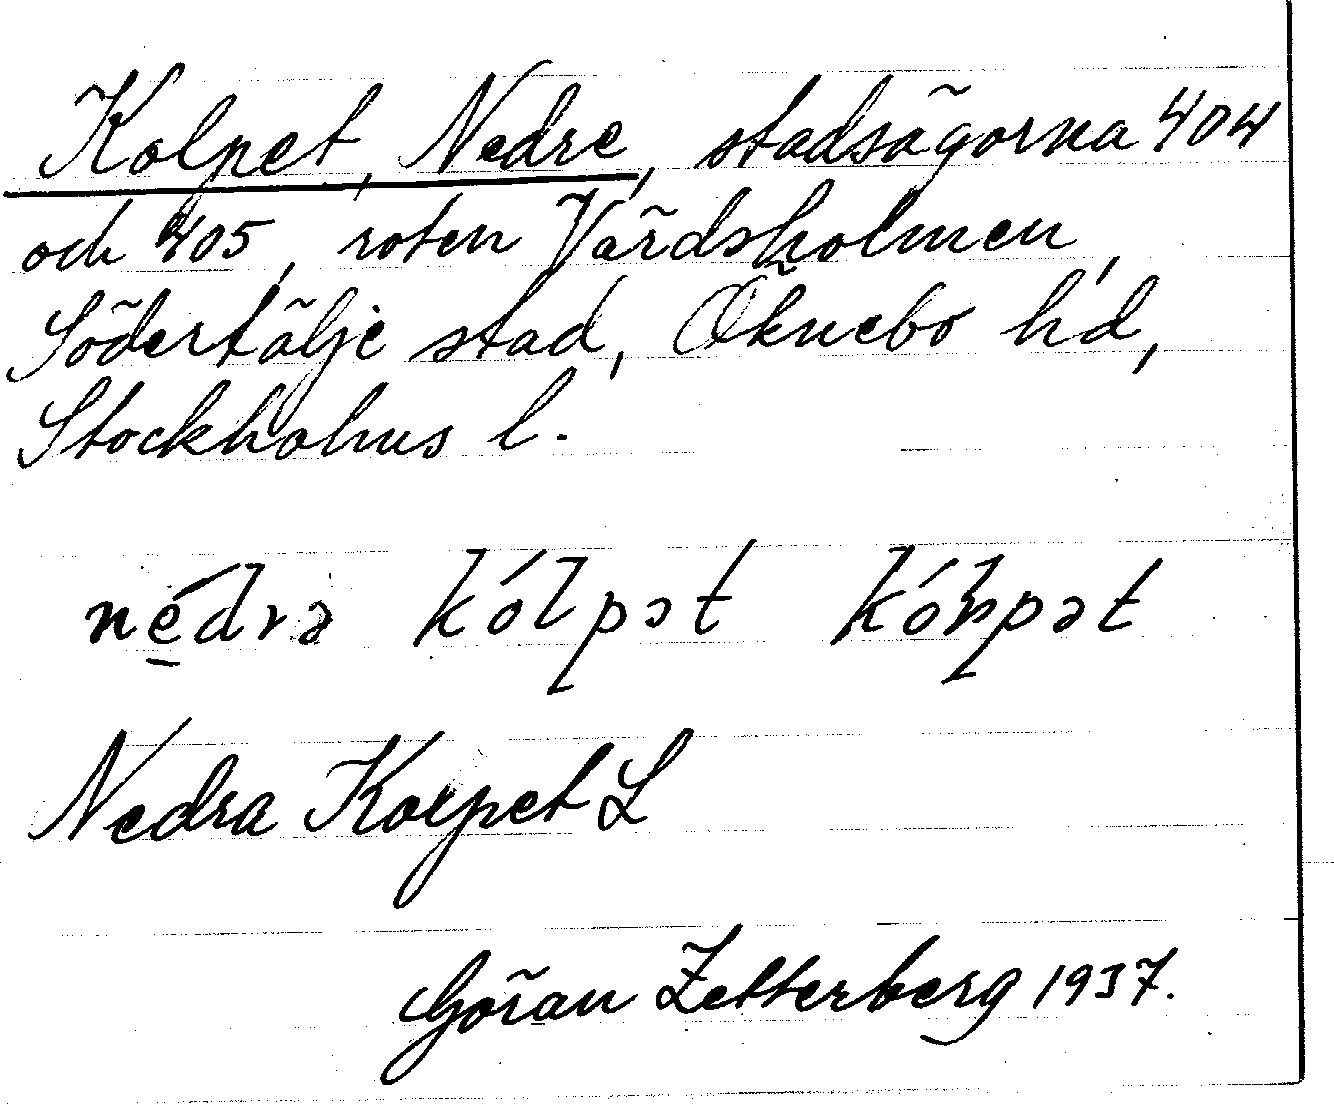 Kolpet, Nedre, stadsägorna 404
och 405, roten Värdsholmen,
Södertälje stad, Öknebo hd,
Stockholms l.
nẹ́dra kólpət kóḷpət
Nedra Korpet L
Göran Zetterberg 1937.